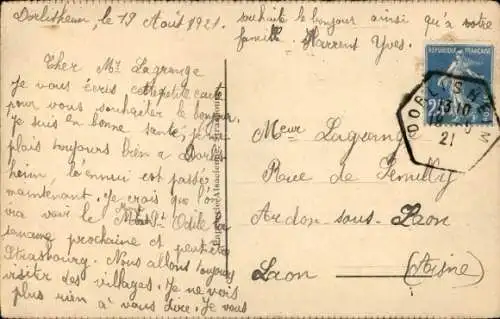 Dorlisheim, le 19 Août 1921.
Cher Mr Lagrange
je vous écris cette petite carte
pour vous souhaiter le bonjour.
Je suis en bonne santé, je me
plais toujours bien a Dorlis
heim, l'ennui est passé
maintenant. Je crois que l'on
ira voir le Mt St Odile la
semaine prochaine et peut-être
Strasbourg. Nous allons toujours
visiter des villages. Je ne vois
plus rien à vous dire. Je vous
souhaite le bonjour ainsi qu'à votre
famille. Harrent Yves.
REPUBLIQUE FRANÇAISE
DORLISHEIM
13-10
19
21
Meur Lagrange
Rue de Semilly
Ardon-sous-Laon
Laon (Aisne)